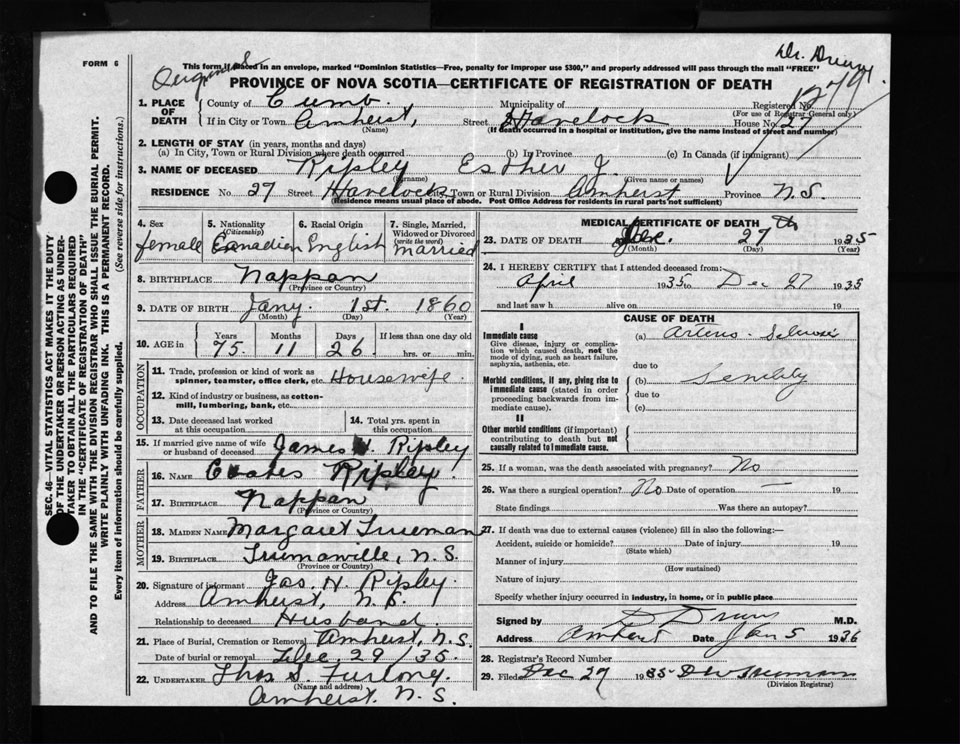 FORM 6
SEC. 46—VITAL STATISTICS ACT MAKES IT THE DUTY
OF THE UNDERTAKER OR PERSON ACTING AS UNDER-
TAKER TO OBTAIN ALL THE PARTICULARS REQUIRED
IN THE "CERTIFICATE OF REGISTRATION OF DEATH"
AND TO FILE THE SAME WITH THE DIVISION REGISTRAR WHO SHALL ISSUE THE BURIAL PERMIT.
WRITE PLAINLY WITH UNFADING INK. THIS IS A PERMANENT RECORD.
Every item of information should be carefully supplied. (See reverse side for instructions.)
Dr. Drury
This form if placed in an envelope, marked "Dominion Statistics—Free, penalty for improper use $300," and properly addressed will pass through the mail "FREE"
PROVINCE OF NOVA SCOTIA—CERTIFICATE OF REGISTRATION OF DEATH
1. PLACE OF DEATH County of Cumb. Municipality of Registered No. 1279
(For use of Registrar General only)
If in City or Town Amherst, Street Havelock House No. 27
(Name) (If death occurred in a hospital or institution, give the name instead of street and number)
2. LENGTH OF STAY (in years, months and days)
(a) In City, Town or Rural Division where death occurred (b) In Province (c) In Canada (if immigrant)
3. NAME OF DECEASED Ripley Esther J.
(Surname) (Given name or names)
RESIDENCE No. 27 Street Havelock City, Town or Rural Division Amherst Province N.S.
(Residence means usual place of abode. Post Office Address for residents in rural parts not sufficient)
4. Sex 5. Nationality (Citizenship) 6. Racial Origin 7. Single, Married, Widowed or Divorced (write the word)
female Canadian English married
8. BIRTHPLACE Nappan
(Province or Country)
9. DATE OF BIRTH Jany. 1st. 1860
(Month) (Day) (Year)
10. AGE in Years Months Days If less than one day old
75 11 26 hrs. or min.
OCCUPATION
11. Trade, profession or kind of work as spinner, teamster, office clerk, etc. Housewife
12. Kind of industry or business, as cotton-mill, lumbering, bank, etc.
13. Date deceased last worked at this occupation 14. Total yrs. spent in this occupation.
15. If married give name of wife or husband of deceased James Ripley
FATHER
16. NAME Coates Ripley
17. BIRTHPLACE Nappan
(Province or Country)
MOTHER
18. MAIDEN NAME Margaret Trueman
19. BIRTHPLACE Truemanville, N.S.
(Province or Country)
20. Signature of informant Jas. H. Ripley
Address Amherst, N.S.
Relationship to deceased Husband
21. Place of Burial, Cremation or Removal Amherst, N.S.
Date of burial or removal Dec. 29/35.
22. UNDERTAKER Thos S. Furlong
(Name and address)
Amherst N.S.
MEDICAL CERTIFICATE OF DEATH
23. DATE OF DEATH Dec. 27th 1935
(Month) (Day) (Year)
24. I HEREBY CERTIFY that I attended deceased from:
April 1935 to Dec 27 1935
and last saw h alive on 19
CAUSE OF DEATH
I
Immediate cause
Give disease, injury or complication which caused death, not the mode of dying, such as heart failure, asphyxia, asthenia, etc.
(a) Arterio-Sclerosis
due to
Morbid conditions, if any, giving rise to immediate cause (stated in order proceeding backwards from immediate cause).
(b) Senility
due to
(c)
II
Other morbid conditions (if important) contributing to death but not causally related to immediate cause.
25. If a woman, was the death associated with pregnancy? No
26. Was there a surgical operation? No Date of operation — 19
State findings Was there an autopsy?
27. If death was due to external causes (violence) fill in also the following:—
Accident, suicide or homicide? Date of injury 19
(State which)
Manner of injury
(How sustained)
Nature of injury
Specify whether injury occurred in industry, in home, or in public place
Signed by D Drury M.D.
Address Amherst Date Jan 5 1936
28. Registrar's Record Number
29. Filed Dec 27 1935
(Division Registrar)